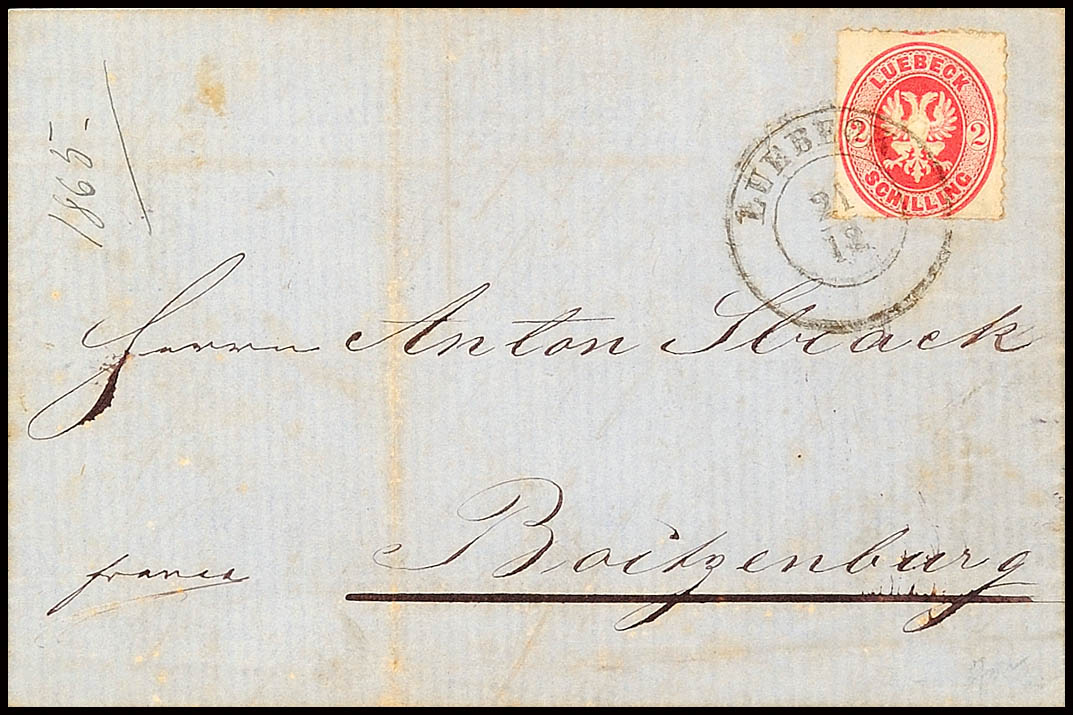 1865-
LUEBECK
2 2
SCHILLING
LUEBE
21
12
Herrn Anton
Boitzenburg
franco